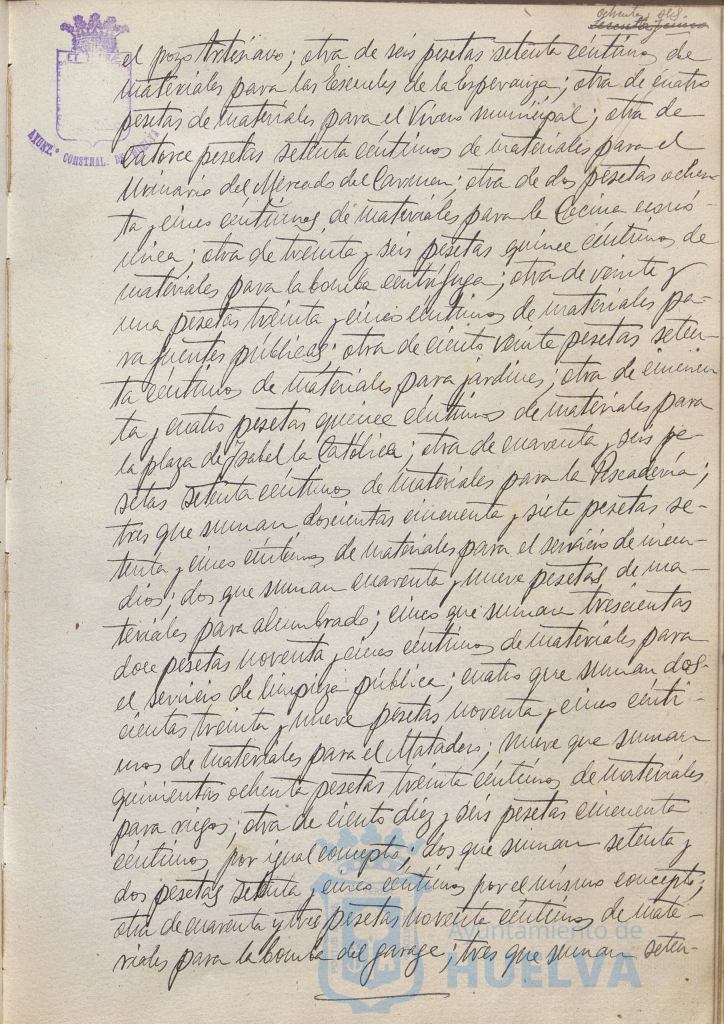 ochenta, seis.
el pozo Artesiano; otra de seis pesetas setenta céntimos de
materiales para las Escuelas de la Esperanza; otra de cuatro
pesetas de materiales para el Vivero municipal; otra de
catorce pesetas setenta céntimos de materiales para el
Urinario del Mercado del Carmen; otra de dos pesetas ochen-
ta y cinco céntimos de materiales para la Cocina econó-
mica; otra de treinta y seis pesetas quince céntimos de
materiales para la bomba centrífuga; otra de veinte y
una pesetas treinta y cinco céntimos de materiales pa-
ra fuentes públicas; otra de ciento veinte pesetas seten-
ta céntimos de materiales para jardines; otra de cincuen
ta y cuatro pesetas quince céntimos de materiales para
la plaza de Isabel la Católica; otra de cuarenta y seis pe-
setas setenta céntimos de materiales para la Pescadería;
tres que suman doscientas cincuenta y siete pesetas se-
tenta y cinco céntimos de materiales para el servicio de incen-
dios; dos que suman cuarenta y nueve pesetas de ma-
teriales para alumbrado; cinco que suman trescientas
doce pesetas noventa y cinco céntimos de materiales para
el servicio de limpieza pública; cuatro que suman dos-
cientas treinta y nueve pesetas noventa y cinco cénti-
mos de materiales para el Matadero; nueve que suman
quinientas ochenta pesetas treinta céntimos de materiales
para riegos; otra de ciento diez y seis pesetas cincuenta
céntimos por igual concepto; dos que suman setenta y
dos pesetas setenta y cinco céntimos por el mismo concepto;
otra de cuarenta y tres pesetas noventa céntimos de mate-
riales para la bomba del garage; tres que suman seten-
AYUNT.º CONSTNAL. DE
Ayuntamiento de
HUELVA